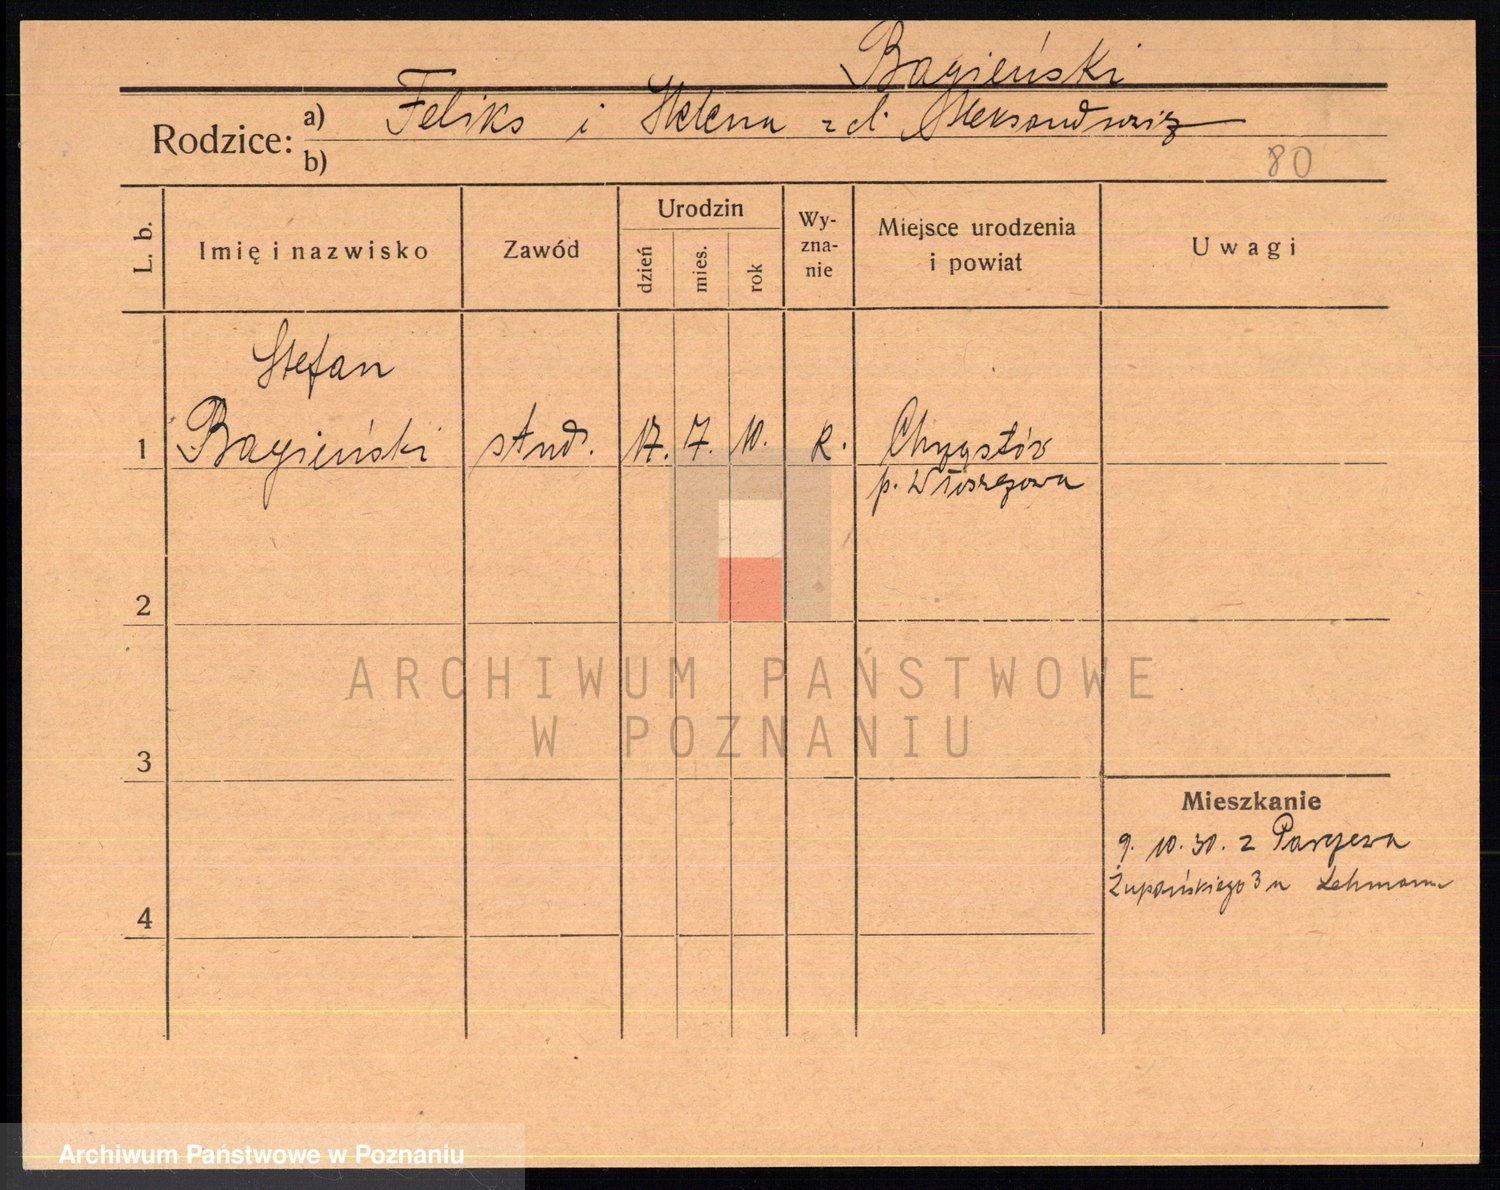 Bagieński
Rodzice: a) Feliks i Helena z d.
b)
80
L. b.
Imię i nazwisko
Zawód
Urodzin
dzień
mies.
rok
Wy-
zna-
nie
Miejsce urodzenia
i powiat
Uwagi
1
Stefan
Bagieński
stud.
17.
7.
10.
R.
p. Włoszczowa
2
3
4
ARCHIWUM PAŃSTWOWE
W POZNANIU
Mieszkanie
9. 10. 30. z
Żupańskiego 3 u Lehmann
Archiwum Państwowe w Poznaniu